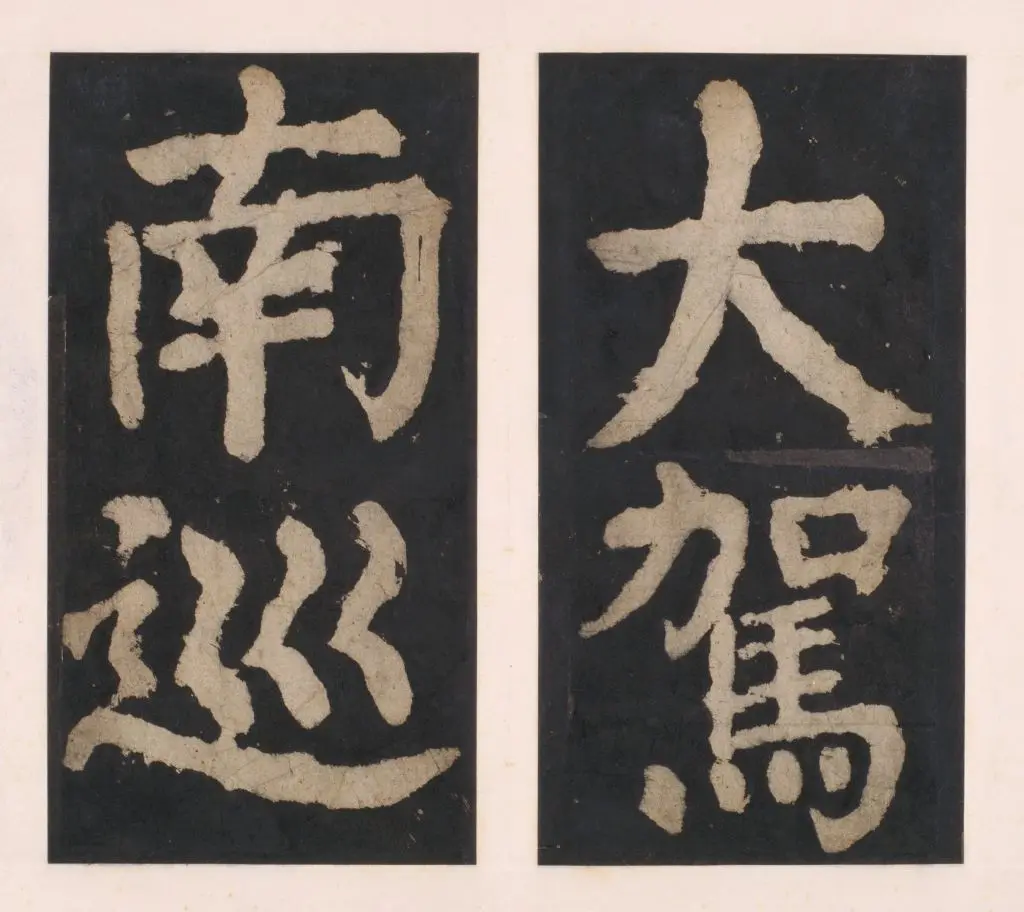 大駕
南巡